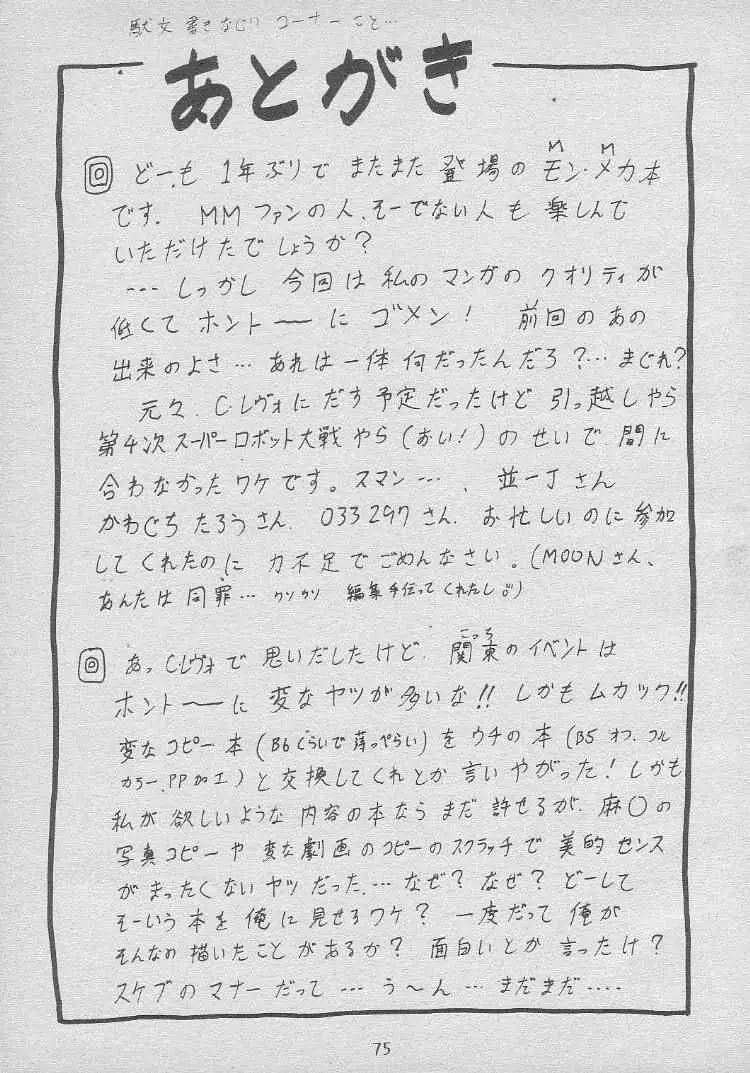 駄文書きなぐりコーナーこと…
あとがき
どーも 1年ぶりで またまた 登場の モン・メカ本
M M
です. MMファンの人、そーでない人も 楽しんで
いただけたでしょうか?
… しっかし 今回は 私の マンガの クオリティが
低くて ホントーーに ゴメン! 前回のあの
出来のよさ… あれは一体 何だったんだろ?… まぐれ?
元々、C.レヴォにだす予定だったけど 引っ越しやら
第4次スーパーロボット大戦やら(おい!)のせいで、間に
合わなかったワケです。スマン…、並一丁さん
かわぐちたろうさん、033297さん、お忙しいのに参加
してくれたのに 力不足でごめんなさい。(MOONさん、
あんたは同罪… クソクソ 編集手伝ってくれたし。)
あっ C.レヴォで思いだしたけど、関東のイベントは
こっち
ホントーーに 変なヤツが多いな!! しかもムカック!!
変なコピー本(B6くらいで薄っぺらい)をウチの本(B5オフ、フル
カラー、PP加工)と交換してくれとか言いやがった! しかも
私が欲しいような内容の本ならまだ許せるが、麻〇の
写真コピーや変な劇画のコピーのスクラッチで美的センス
がまったくないヤツだった… なぜ? なぜ? どーして
そーいう本を俺に見せるワケ? 一度だって俺が
そんなの描いたことがあるか? 面白いとか言ったけ?
スケブのマナーだって … う〜ん … まだまだ….
75